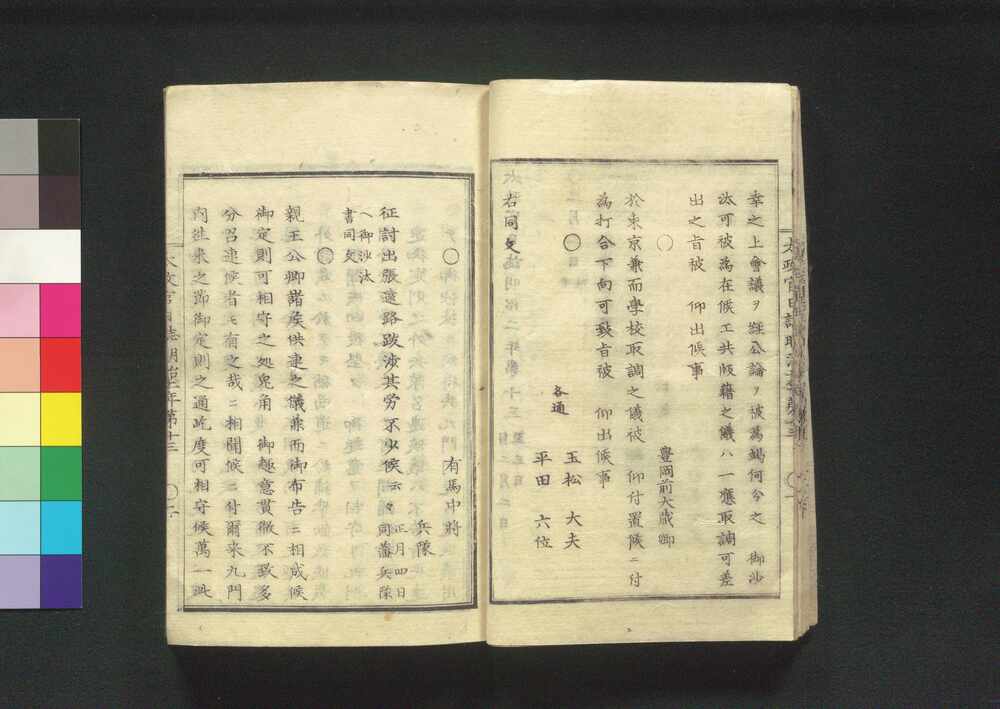 幸之上會議ヲ經公論ヲ被為竭何分之　御沙
汰可被為在候工共版籍之儀ハ一應取調可差
出之旨被　仰出候事
〇　豊岡前大蔵卿
於東京兼而學校取調之儀被　仰付置候ニ付
為打合下向可致旨被　仰出候事
各通
〇　玉松　大夫
平田　六位
右同文
〇　有馬中将
兵隊
征討出張遠路跋渉其労不少候云々正月四日同藩兵隊
ヘ御沙汰
書同文
〇
親王公卿諸侯供連之儀兼而御布告ニ相成候
御定則可相守之処兎角　御趣意貫徹不致多
分召連候者モ有之哉ニ相聞候ニ付爾来九門
内往来之節御定則之通屹度可相守候萬一此
太政官日誌明治二年第十三